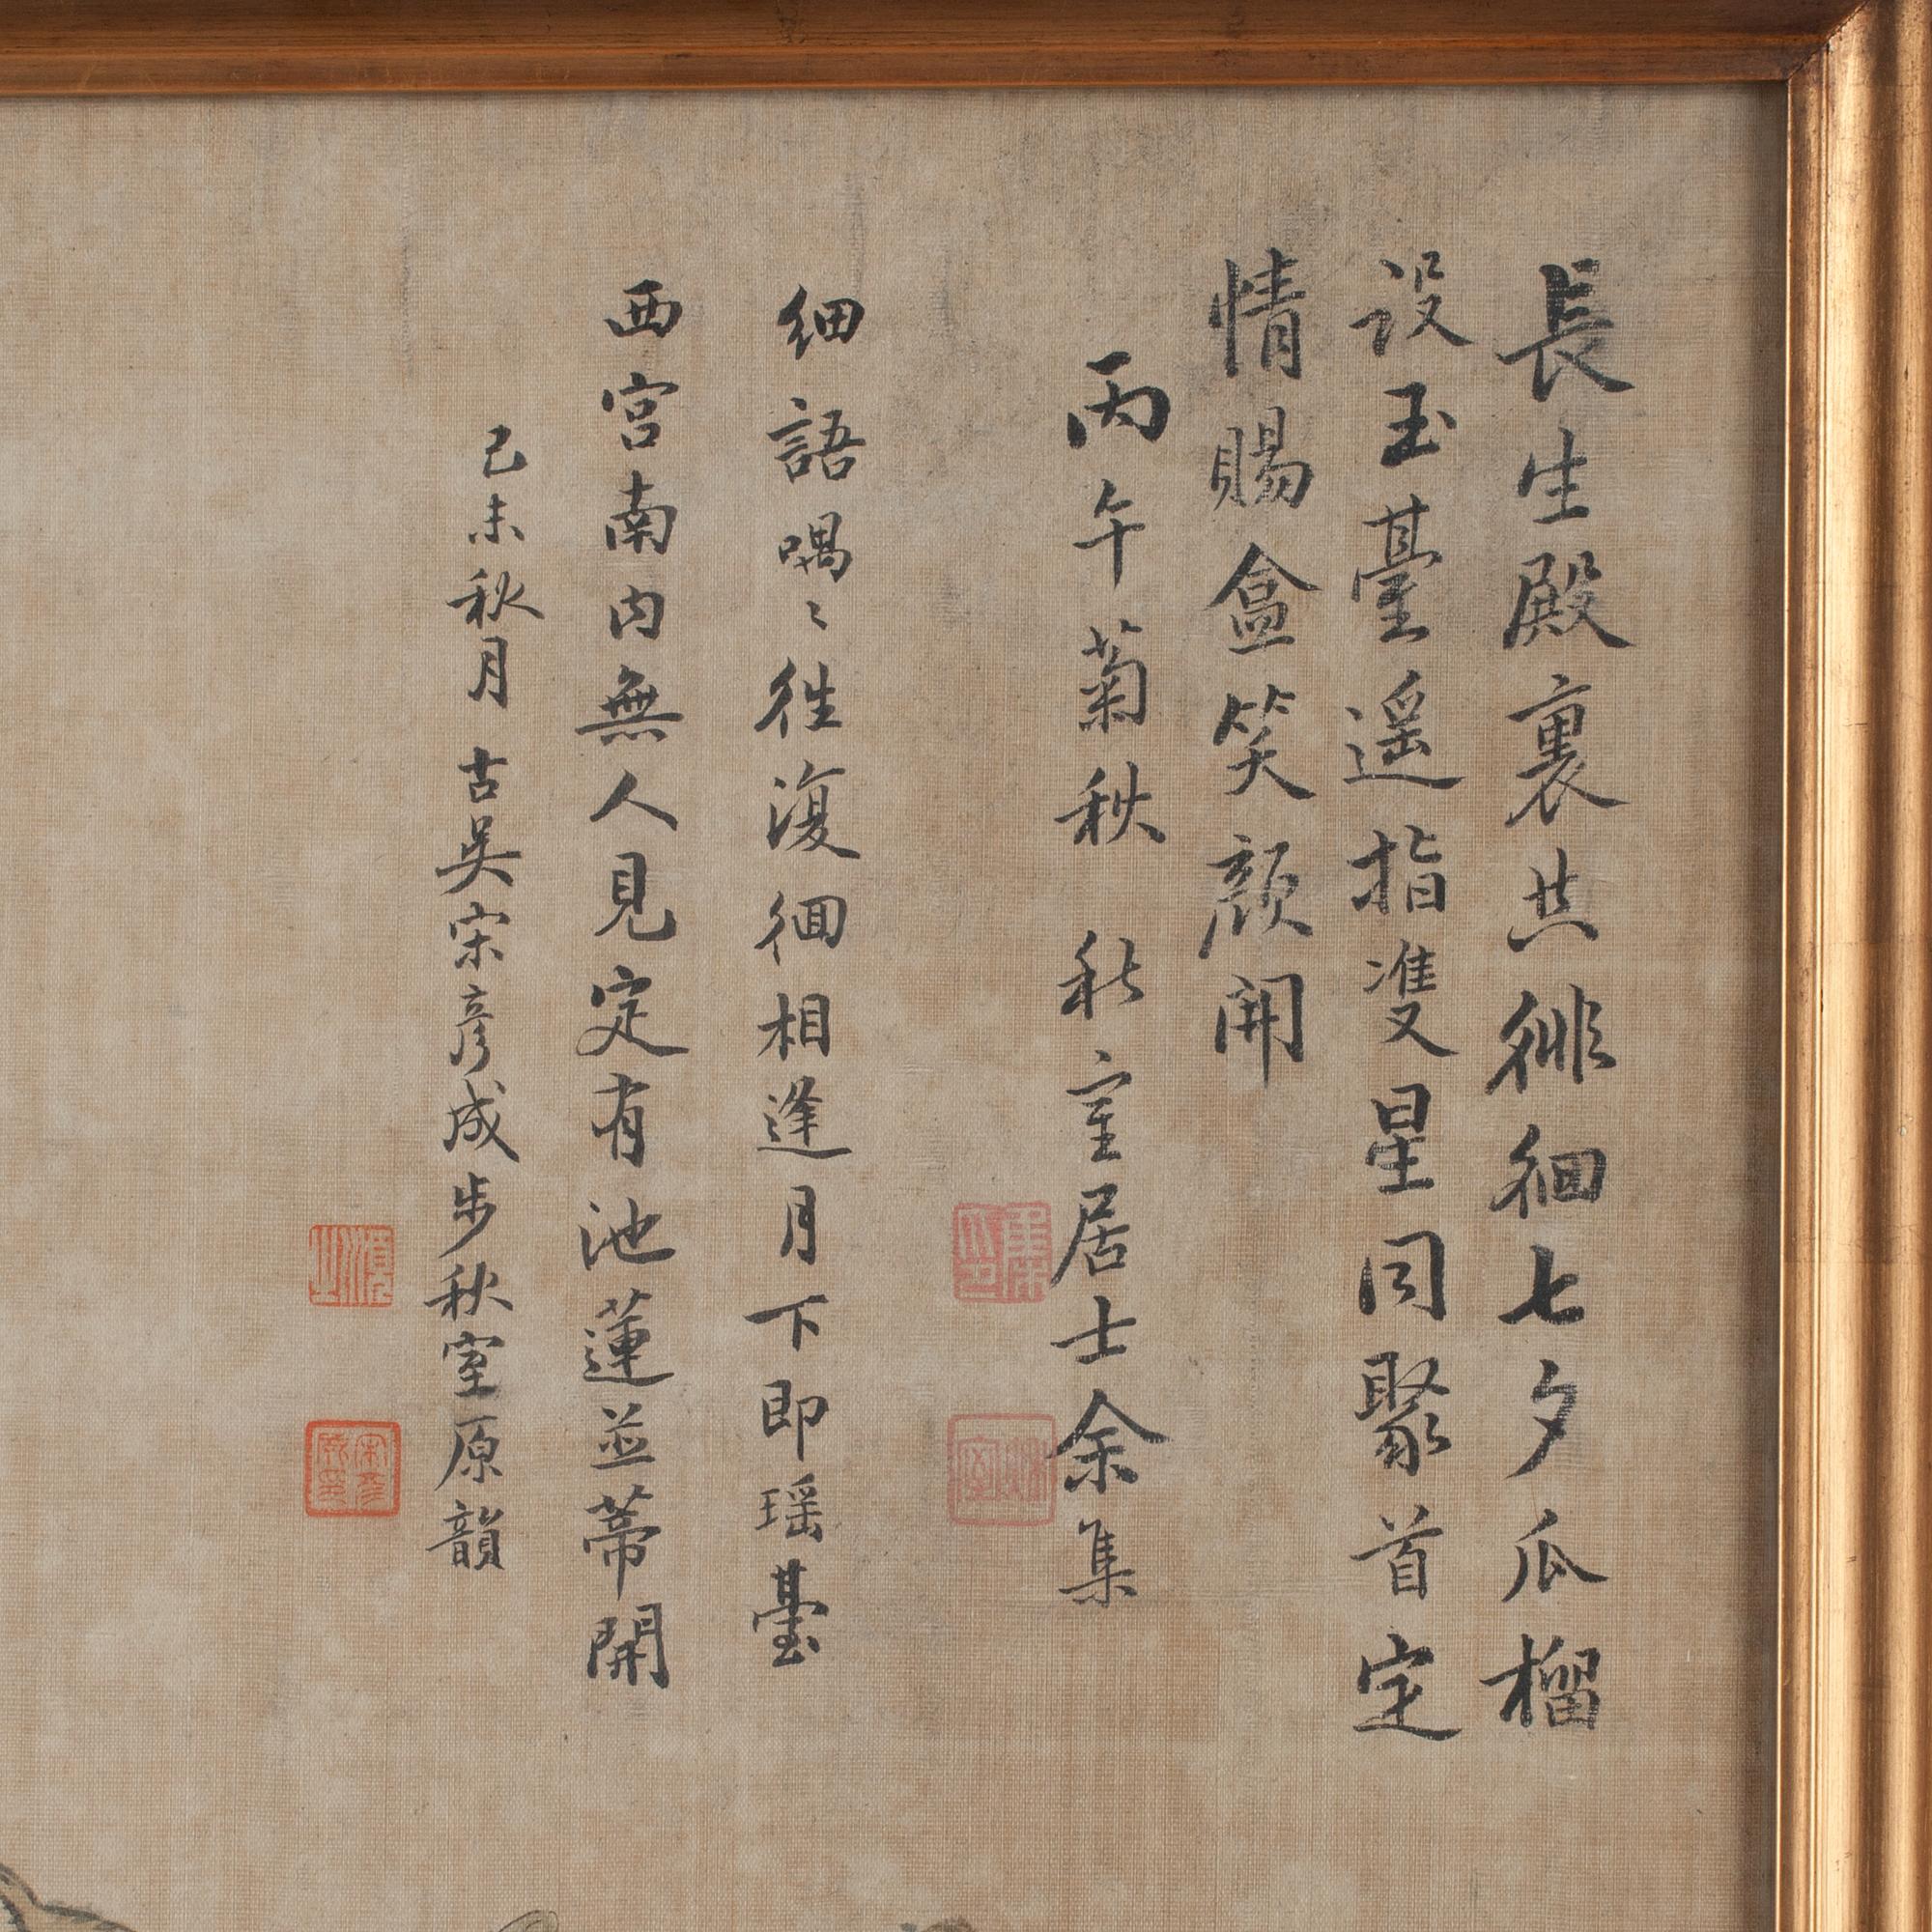 長生殿裏共徘徊七夕瓜榴
设玉臺遥指雙星同聚首定
情賜盒笑顔開
丙午菊秋 秋室居士余集
細語喁〻往復徊相逢月下即瑶臺
西宮南内無人見定有池蓮並蒂開
己未秋月 古吳宋彦成步秋室原韻
秋室
宋彦成印